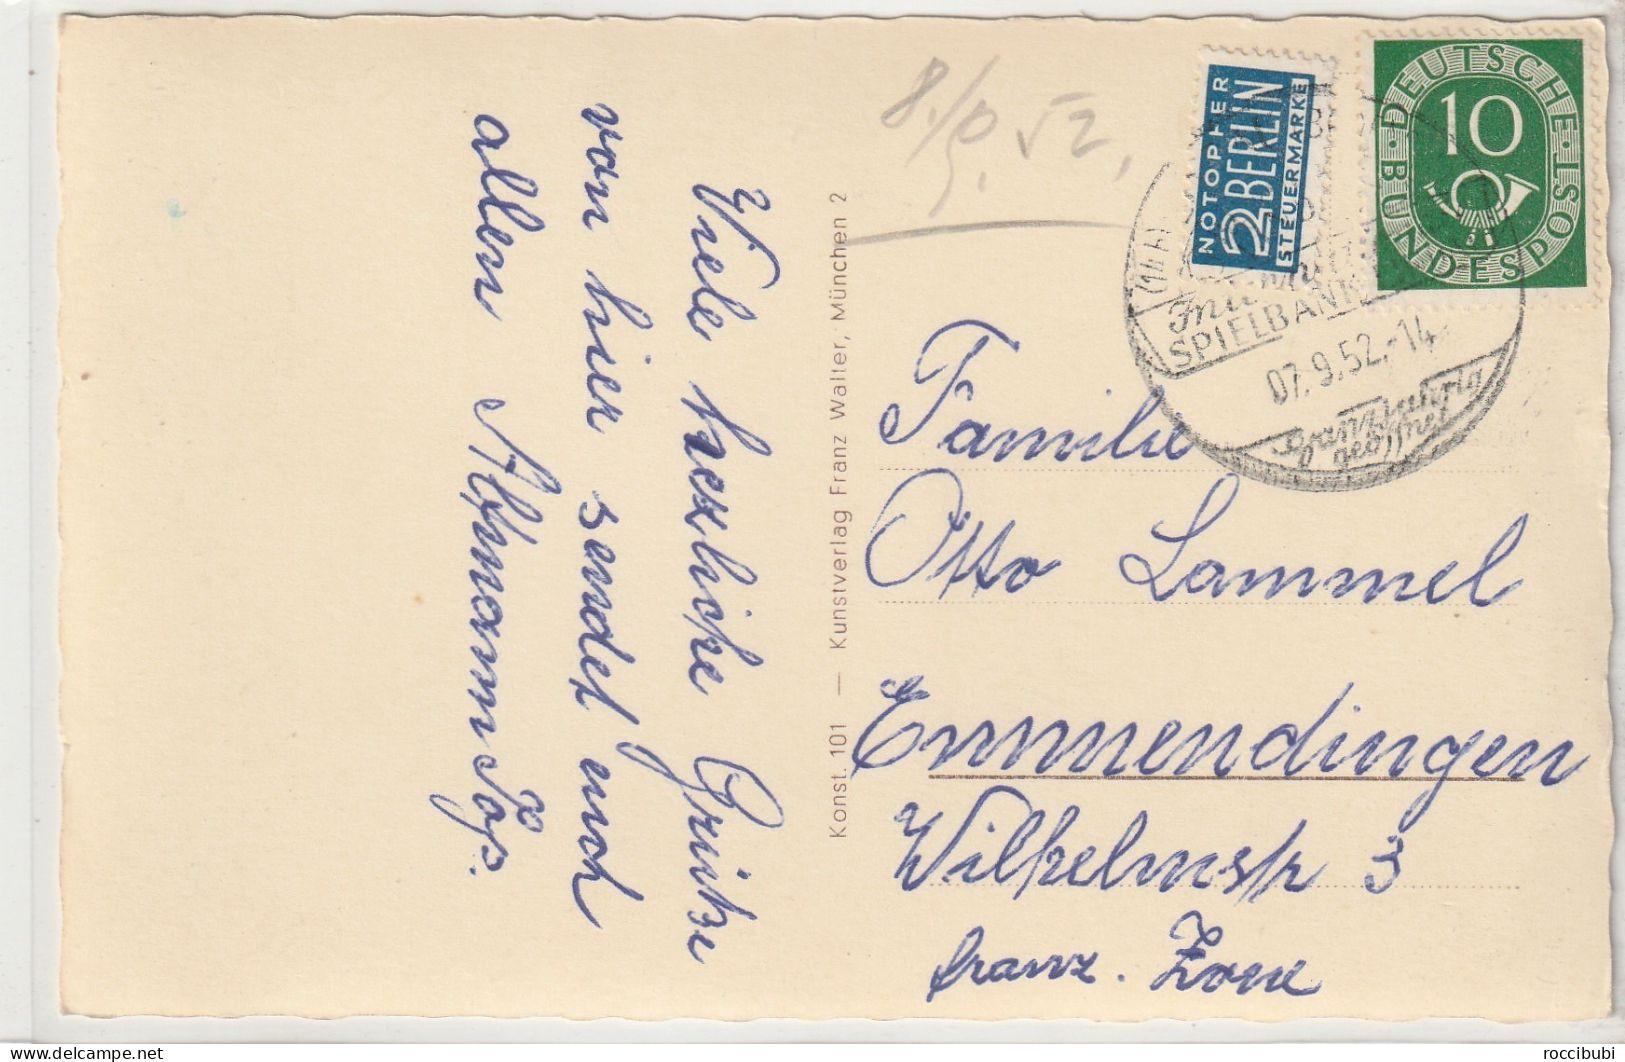 Viele herzliche Grüße
von hier sendet euch
allen
Konst. 101 — Kunstverlag Franz Walter, München 2
NOTOPFER
2 BERLIN
STEUERMARKE
DEUTSCHE BUNDESPOST
10
SPIELBANK
07.9.52.-14
ganzjährig
geöffnet
Familie
Otto Lammel
Emmendingen
Wilhelmstr 3
franz. Zone
roccibubi